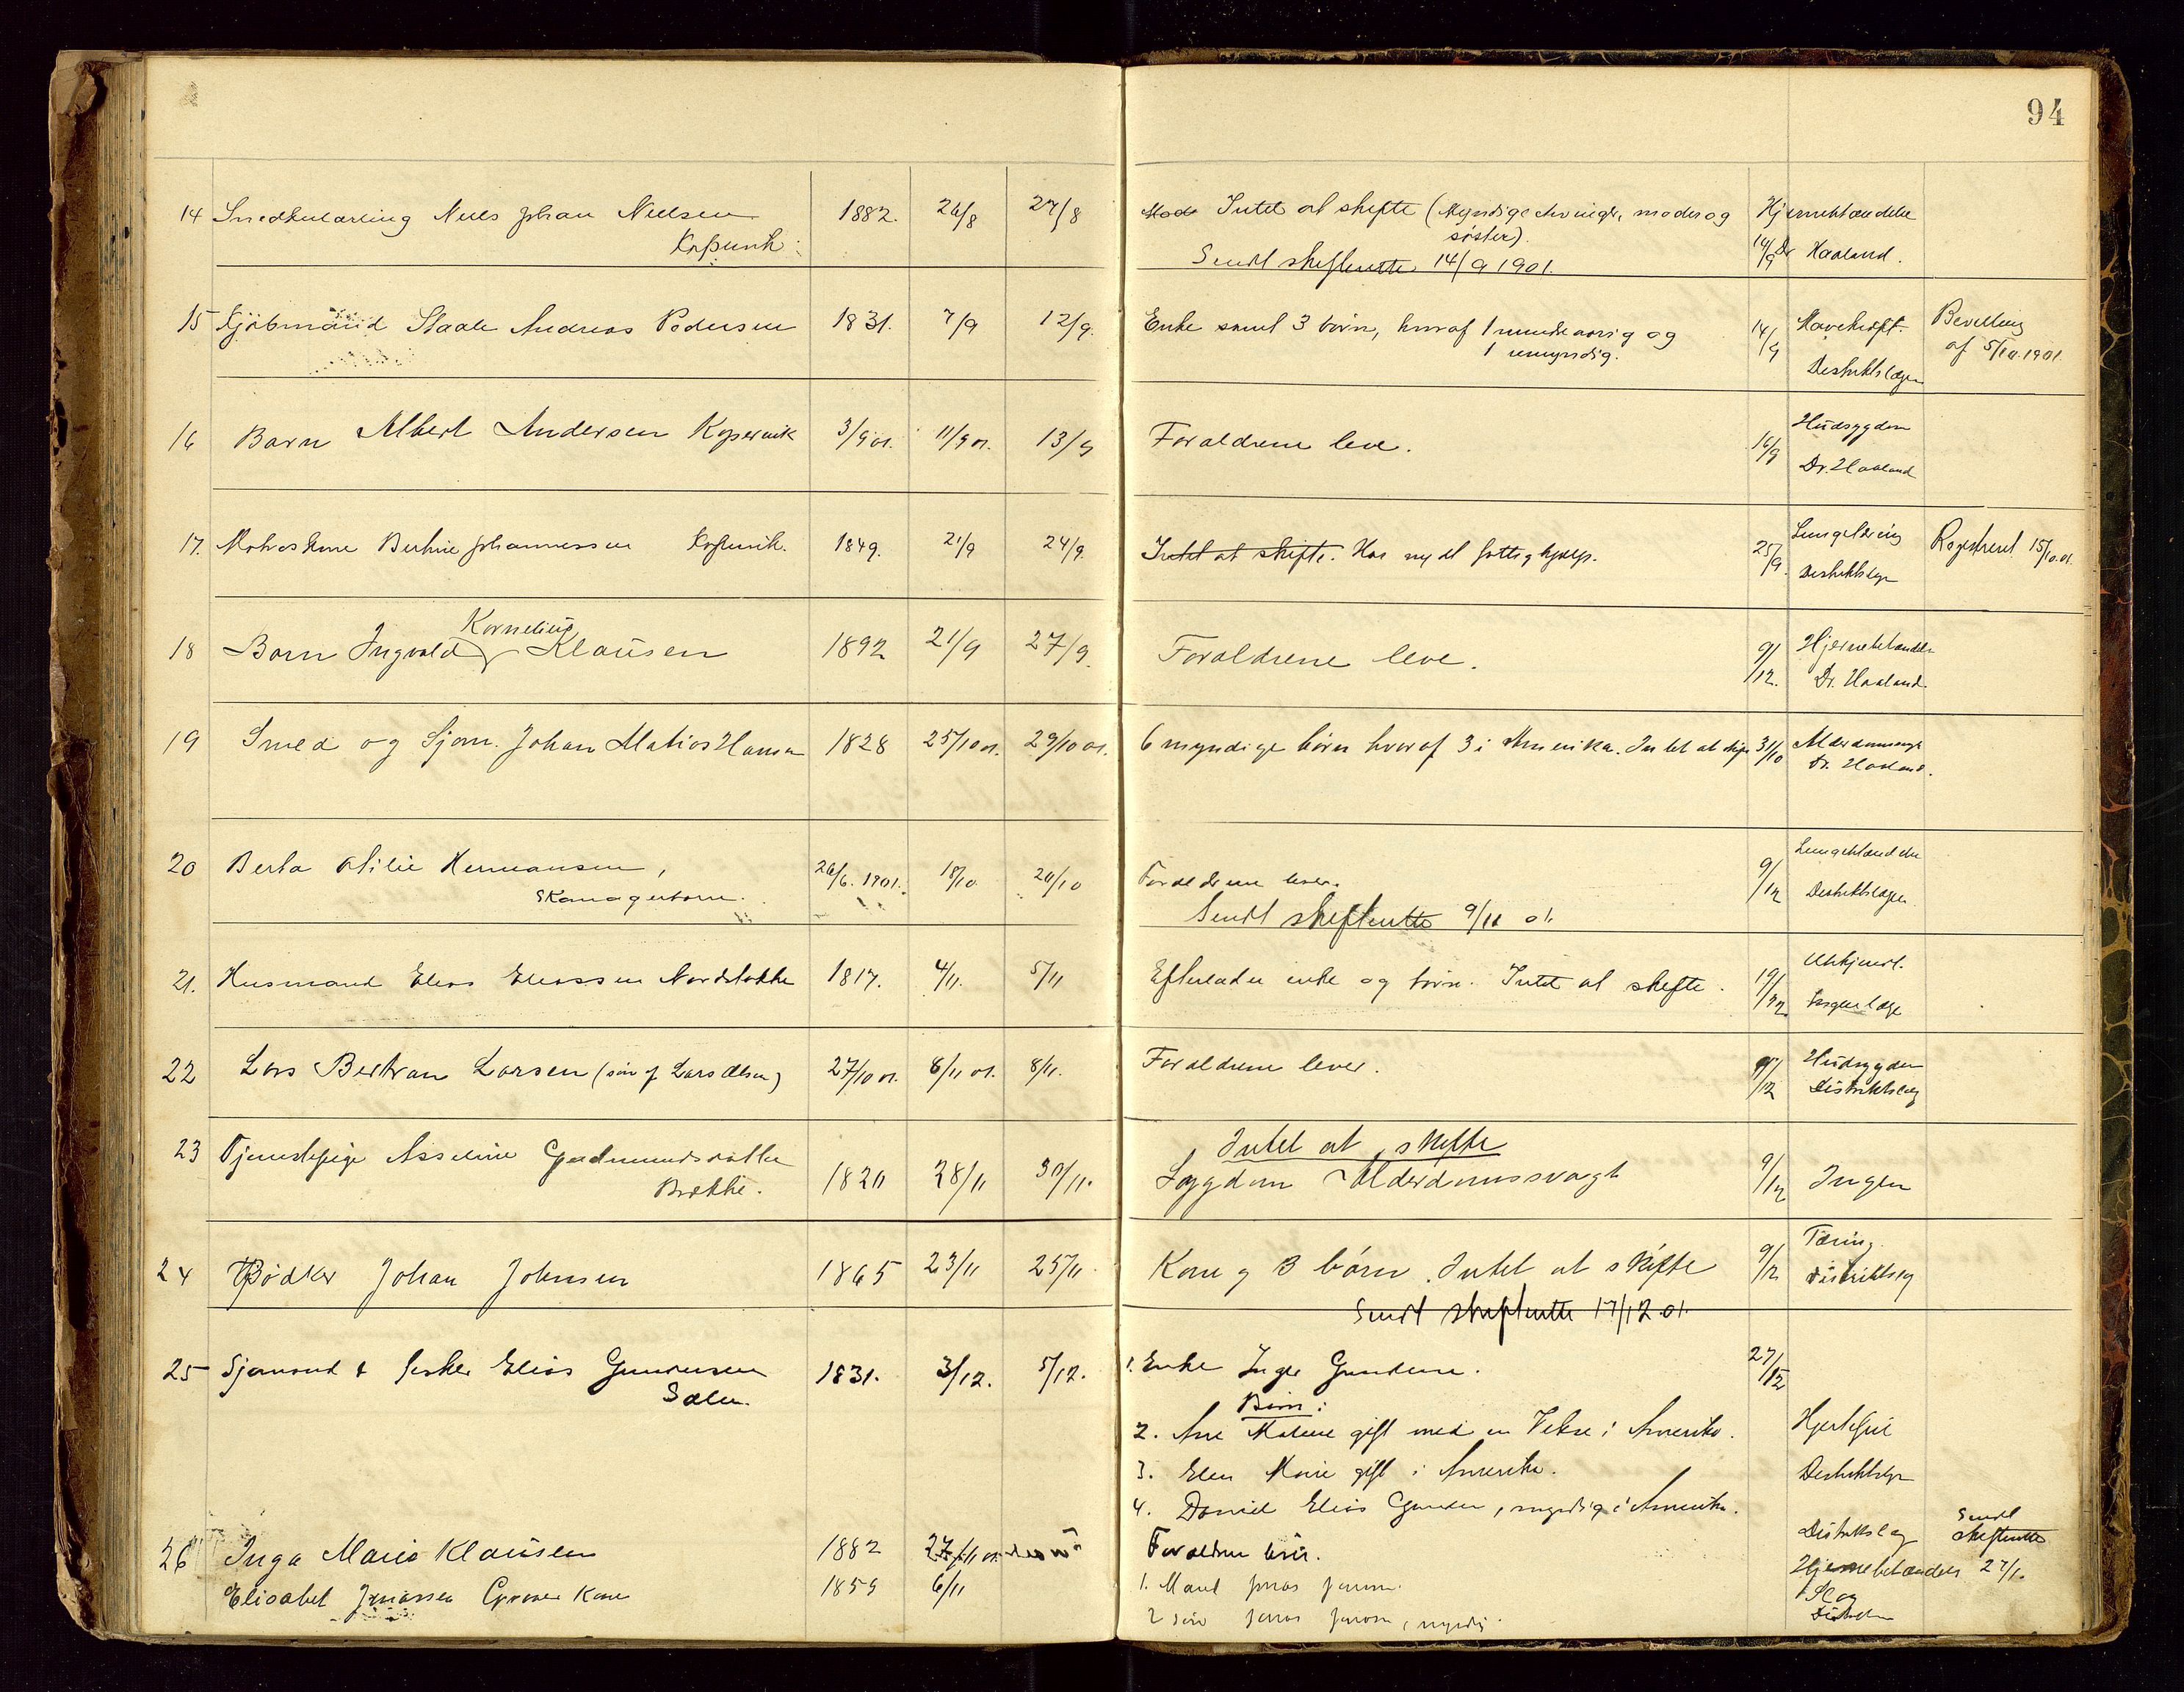 94
14 Smedkulærling Niels Johan Nielsen 1882. 26/8 27/8 Intet at skifte (Myndige Arvinger, moder og Hjernebetændelse
Kopervik søster). 14/9 Dr Haaland.
Sendt skifteretten 14/9 1901.
15 Kjöbmand Staale Andreas Pedersen 1831. 7/9 12/9. Enke samt 3 börn, hvoraf 1 mindreaarig og 14/9 Mavekræft. Bevilling
1 umyndig. Distriktslægen af 5/10.1901.
16 Barn Albert Andersen Kopervik 3/9 01. 11/9 01. 13/9 Forældrene leve. 16/9 Hudsygdom
Dr. Haaland
17. Johannessen Kopervik. 1849. 21/9 24/9. Intet at skifte. Har nydt fattighjælp. 25/9. Registreret 15/10.01.
Distriktslæge
Kornelius
18 Barn Ingvald Klausen 1892 21/9 27/9. Forældrene leve. 9/12. Hjernebetændelse
Dr. Haaland.
19 Smed og Sjøm. Johan Matias Hansen 1828 25/10 01. 29/10 01. 6 myndige börn hvoraf 3 i Amerika. Intet at skifte 31/10
Dr. Haaland.
20 Berta Otilie Hermansen, 26/6. 1901. 18/10 20/10 Forældrene lever. 9/12 Lungebetændelse
Skomagerbarn. Distriktslægen
Sendt skifteretten 9/11 01.
21. Husmand Elias Eliassen Nordstokke 1817. 4/11. 5/11 Efterlader enke og börn. Intet at skifte. 19/12. Ubekjendt.
Ingen læge
22 Lars Bertran Larsen (sön af Lars Olsen) 27/10 01. 6/11 01. 8/11. Forældrene lever. 9/12 Hudsygdom
Distriktslæg
23 Tjenestepige Asseline Gudmundsdatter 1820 28/11 30/11. Intet at skifte
Brekke. Sygdom Alderdomssvagt 9/12 Ingen
24 Bödker Johan Johnsen 1865 23/11 25/11. Kone og 3 börn. Intet at skifte 9/12 Tæring.
Distriktslæg
Sendt skifteretten 17/12 01.
25 Sjömand & fisker Elias Gundersen 1831. 3/12. 5/12. 1. Enke Inger Gundersen. 27/12
Börn:
2. Ane Maline gift med en i Amerika. Hjertefeil
3. Elen Marie gift i Amerika. Distriktslæge
4. Daniel Elias Gundersen, myndig i Amerika.
26 Inga Marie Klausen 1882 27/11 01. Forældrene lever. Distriktslæg Sendt skifteretten
Elisabet Jonassen Kone 1859 6/11 1. Mand Jonas Jonassen. Hjernebetændelse 27/1.
2 sön Jonas Jonassen, myndig.